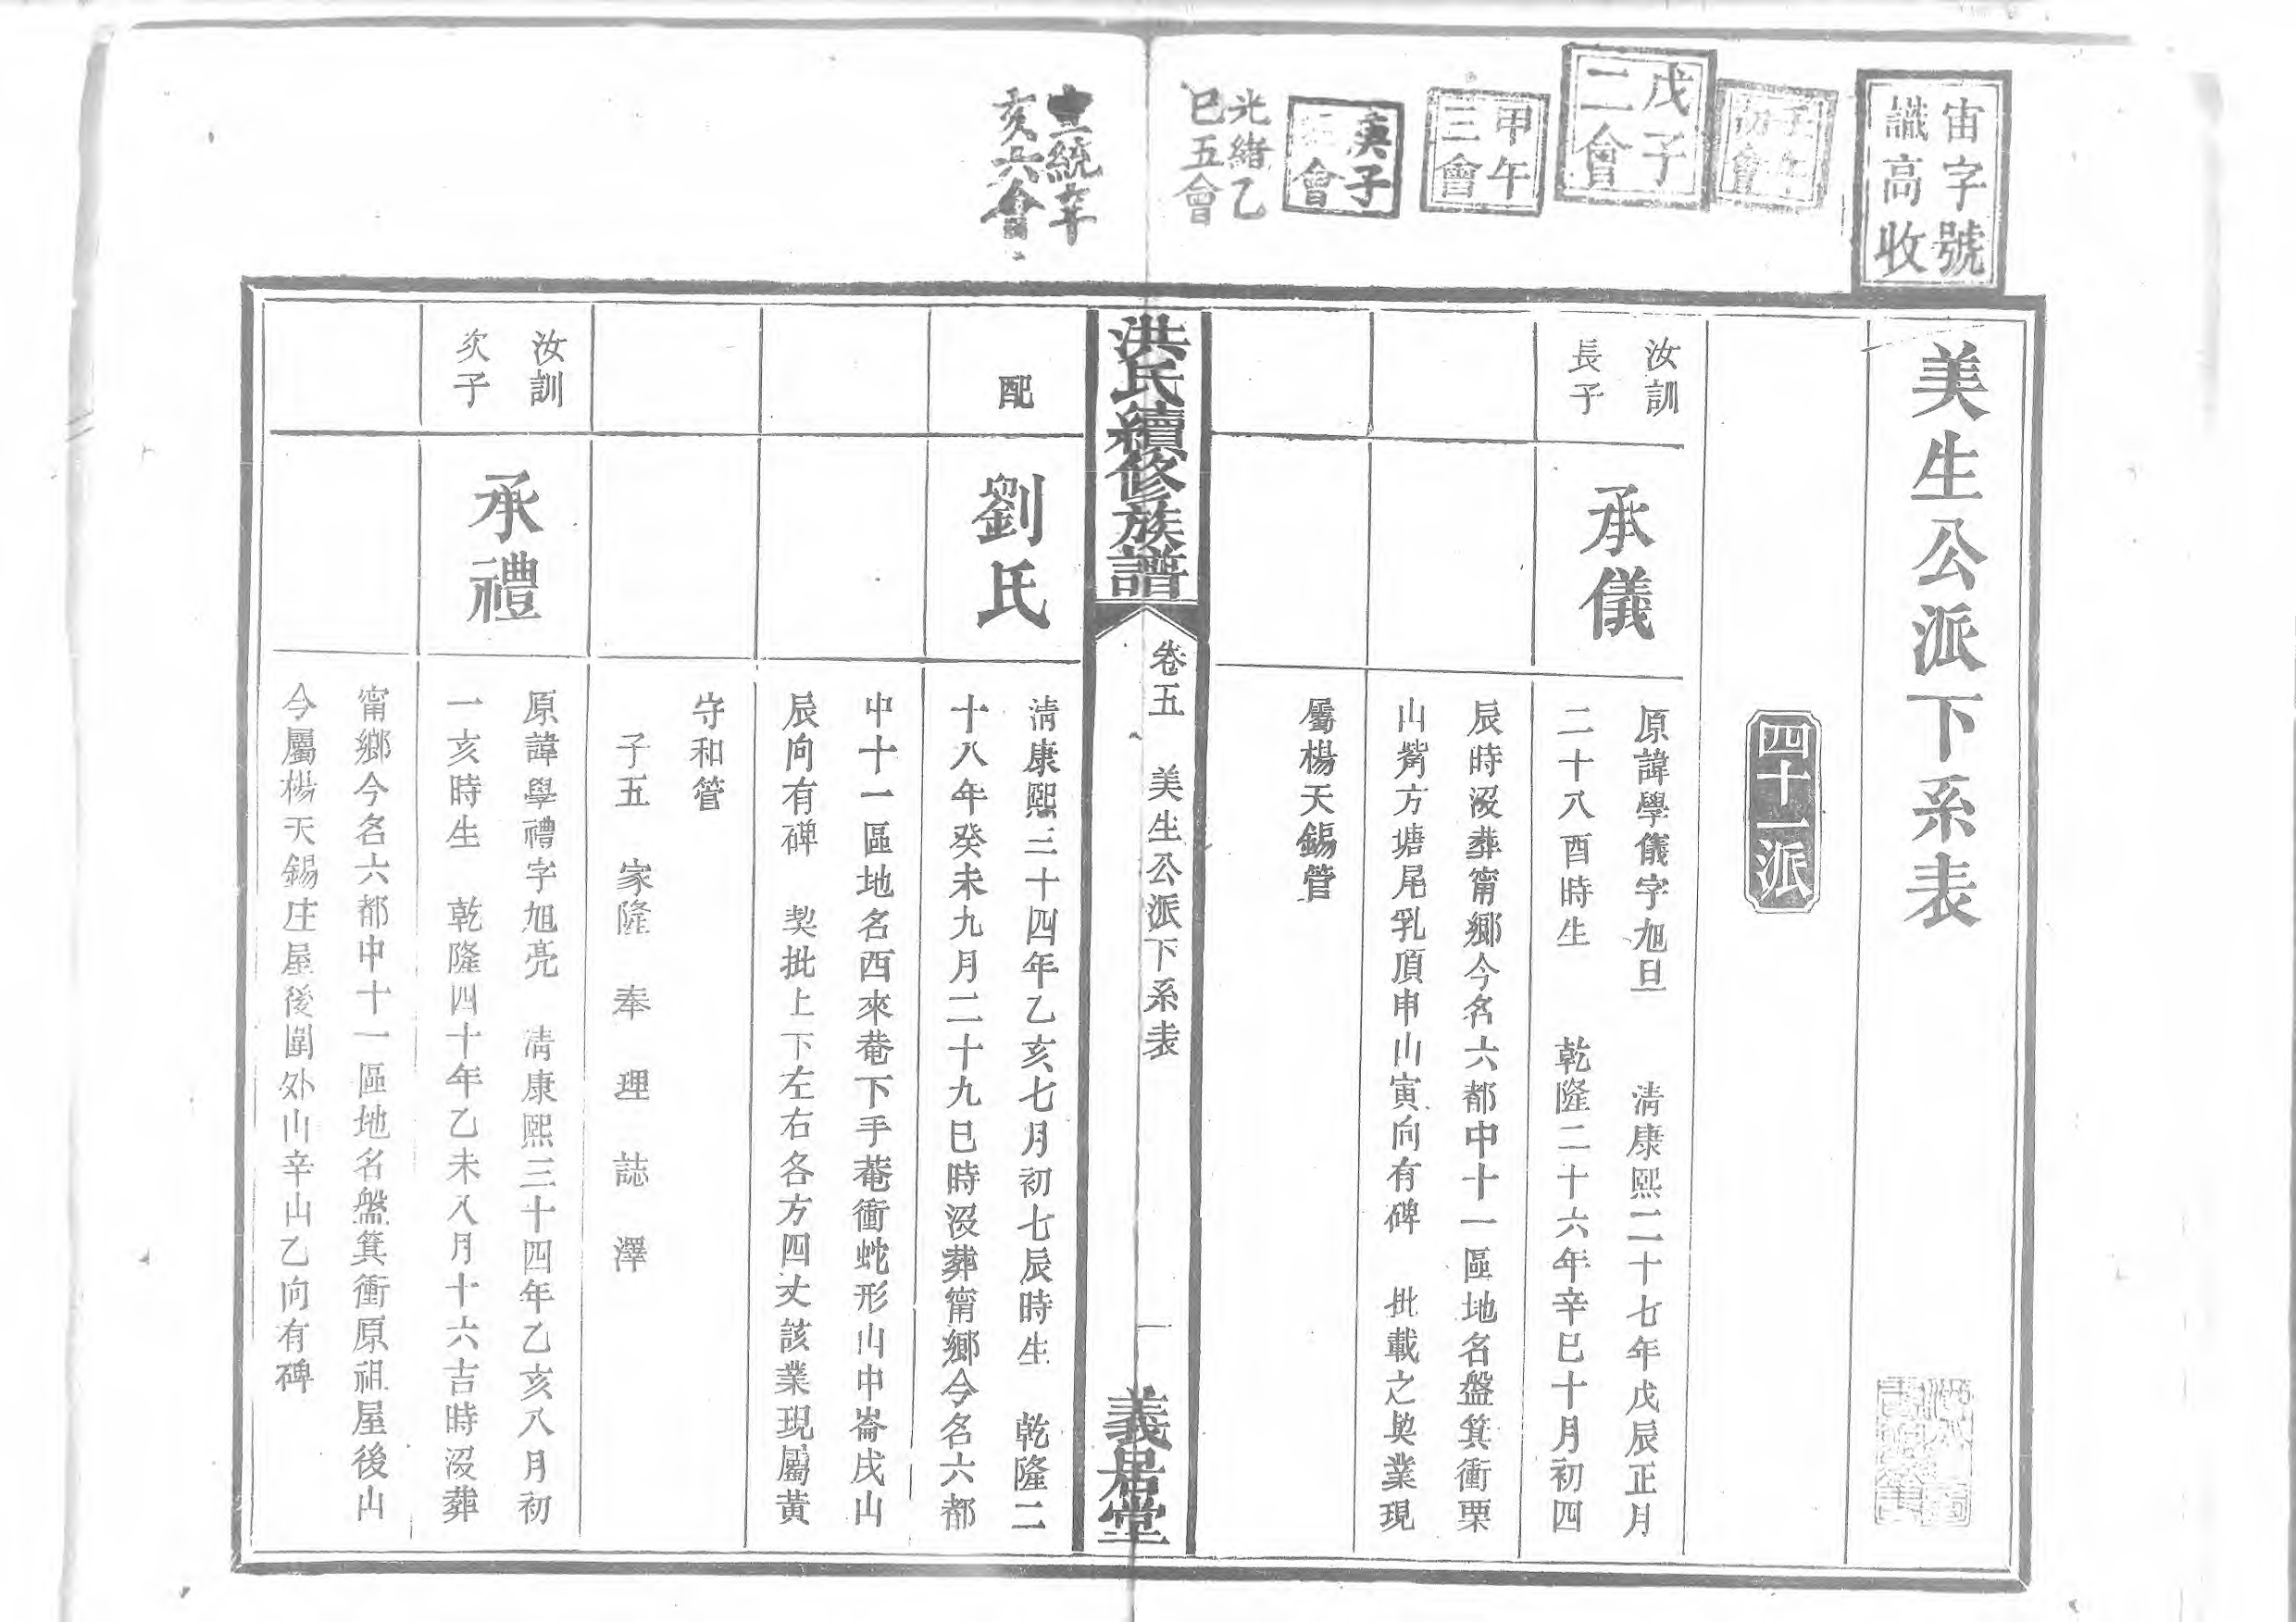 宙字號
識高收
子午
初會
戊子
二會
甲午
三會
庚子
會
光緒乙
巳五會
宣統辛
亥六會
美生公派下系表
四十一派
汝訓
長子
承儀
原諱學儀字旭旦 清康熙二十七年戊辰正月
二十八酉時生 乾隆二十六年辛巳十月初四
辰時沒葬甯鄉今名六都中十一區地名盤箕衝栗
山觜方塘尾乳頂申山寅向有碑 批載之契業現
屬楊天錫管
洪氏續修族譜
卷五 美生公派下系表
一
義居堂
配
劉氏
清康熙三十四年乙亥七月初七辰時生 乾隆二
十八年癸未九月二十九巳時沒葬甯鄉今名六都
中十一區地名西來菴下手菴衝蛇形山中崙戌山
辰向有碑 契批上下左右各方四丈該業現屬黃
守和管
子五 家隆 奉 理 誌 澤
汝訓
次子
承禮
原諱學禮字旭亮 清康熙三十四年乙亥八月初
一亥時生 乾隆四十年乙未八月十六吉時沒葬
甯鄉今名六都中十一區地名盤箕衝原祖屋後山
今屬楊天錫庄屋後圍外山辛山乙向有碑